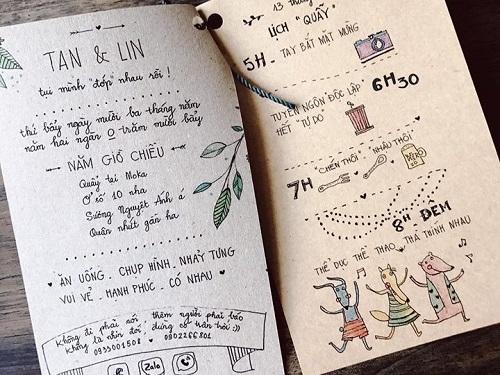 TAN & LIN
tụi mình "đớp" nhau rồi !
thứ bảy ngày mười ba tháng năm
năm hai ngàn 0 trăm mười bảy
NĂM GIỜ CHIỀU
Quẩy tại Moka
Ở số 10 nha
Sương Nguyệt Anh á
Quận nhất gần hà
ĂN UỐNG . CHỤP HÌNH . NHẢY TƯNG
VUI VẺ . HẠNH PHÚC . CÓ NHAU
Không đi phải nói thêm người phải báo
Không là nhịn đói đừng có trần trời :))
0933001508 ♥ 0902266801
Zalo
13 tháng
LỊCH "QUẨY"
5H - TAY BẮT MẶT MỪNG
TUYÊN NGÔN ĐỘC LẬP 6H30
HẾT "TỰ DO"
7H CHÉN THÔI NHẬU THÔI
BEER
8H ĐÊM
THỂ DỤC THỂ THAO . THẢ THÍNH NHAU